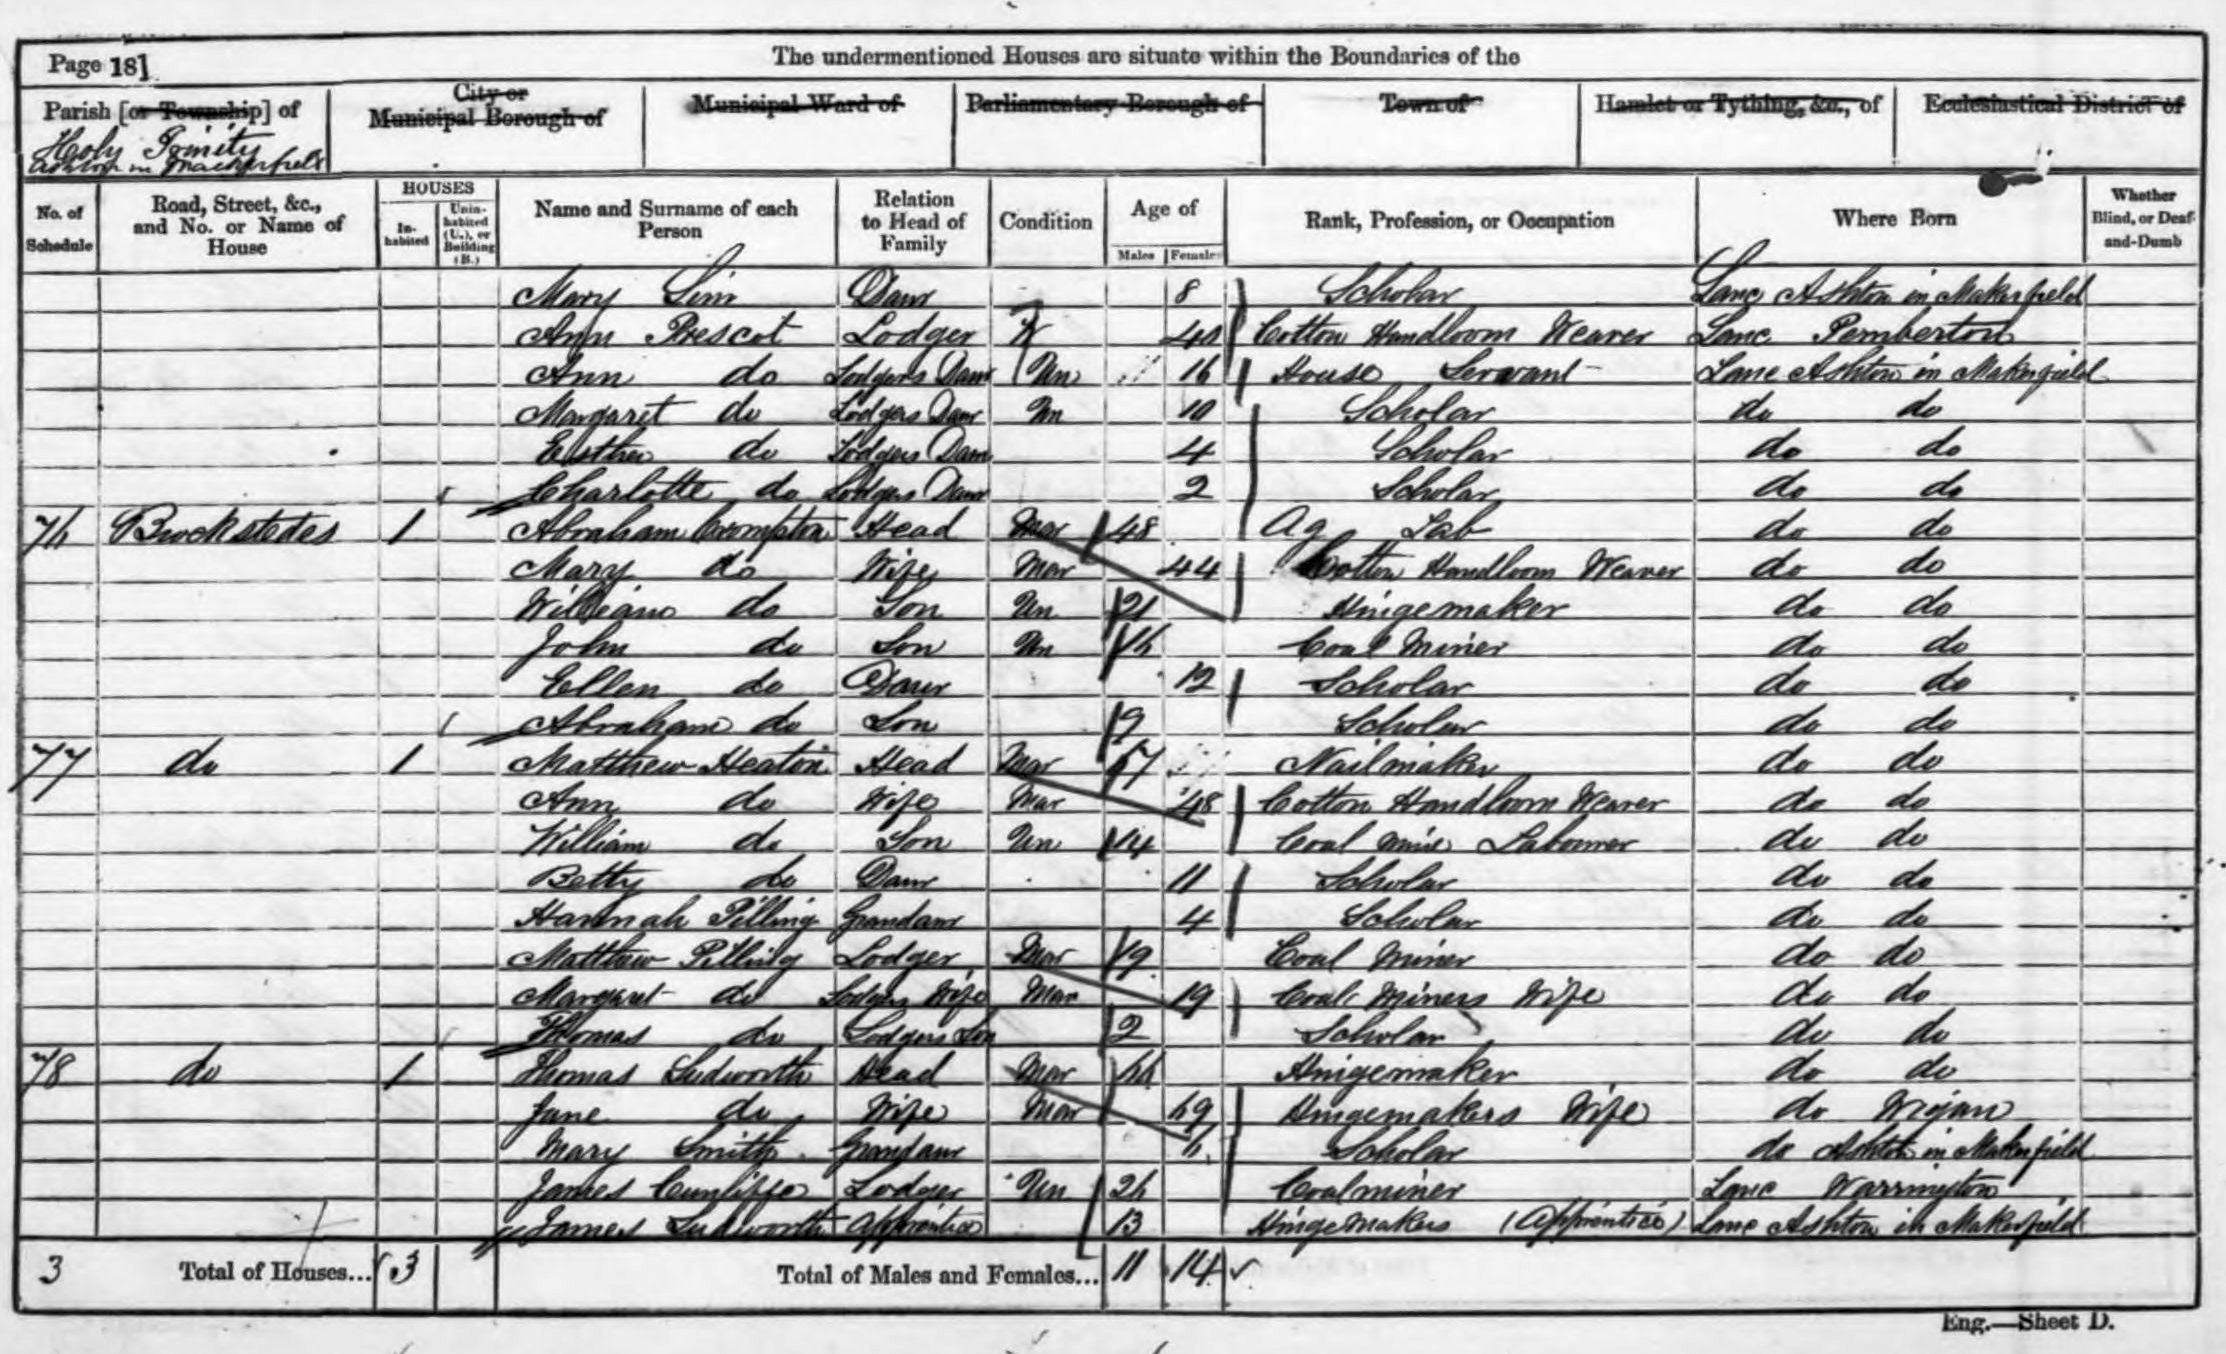 Page 18]
The undermentioned Houses are situate within the Boundaries of the
Parish [or Township] of
City or
Municipal Borough of
Municipal Ward of
Parliamentary Borough of
Town of
Hamlet or Tything, &c., of
Ecclesiastical District of
Holy Trinity
Ashton in Mackerfield
No. of Schedule
Road, Street, &c., and No. or Name of House
HOUSES
In-habited
Unin-habited (U.), or Building (B.)
Name and Surname of each Person
Relation to Head of Family
Condition
Age of
Males
Females
Rank, Profession, or Occupation
Where Born
Whether Blind, or Deaf-and-Dumb
Mary Sim Daur 8 Scholar Lanc Ashton in Makerfield
Ann Prescot Lodger 40 Cotton Handloom Weaver Lanc Pemberton
Ann do Lodgers Daur Un 16 House Servant Lanc Ashton in Makerfield
Margaret do Lodgers Daur Un 10 Scholar do do
Esther do Lodgers Daur 4 Scholar do do
Charlotte do Lodgers Daur 2 Scholar do do
76 Brockstedes 1 Abraham Crompton Head Mar 48 Ag Lab do do
Mary do Wife Mar 44 Cotton Handloom Weaver do do
William do Son Un 21 Hingemaker do do
John do Son Un 16 Coal Miner do do
Ellen do Daur 12 Scholar do do
Abraham do Son 9 Scholar do do
77 do 1 Matthew Heaton Head Mar 57 Nailmaker do do
Ann do Wife Mar 48 Cotton Handloom Weaver do do
William do Son Un 14 Coal Mine Labourer do do
Betty do Daur 11 Scholar do do
Hannah Pilling Grandaur 4 Scholar do do
Matthew Pilling Lodger Mar 19 Coal Miner do do
Margaret do Lodgers Wife Mar 19 Coal Miners Wife do do
Thomas do Lodgers Son 2 Scholar do do
78 do 1 Thomas Sudworth Head Mar 66 Hingemaker do do
Jane do Wife Mar 69 Hingemakers Wife do Wigan
Mary Smith Grandaur 6 Scholar do Ashton in Makerfield
James Cunliffe Lodger Un 26 Coalminer Lanc Warrington
James Sudworth Apprentice 13 Hinge Makers (Apprentice) Lanc Ashton in Makerfield
3 Total of Houses... 3 Total of Males and Females... 11 14
Eng.—Sheet D.